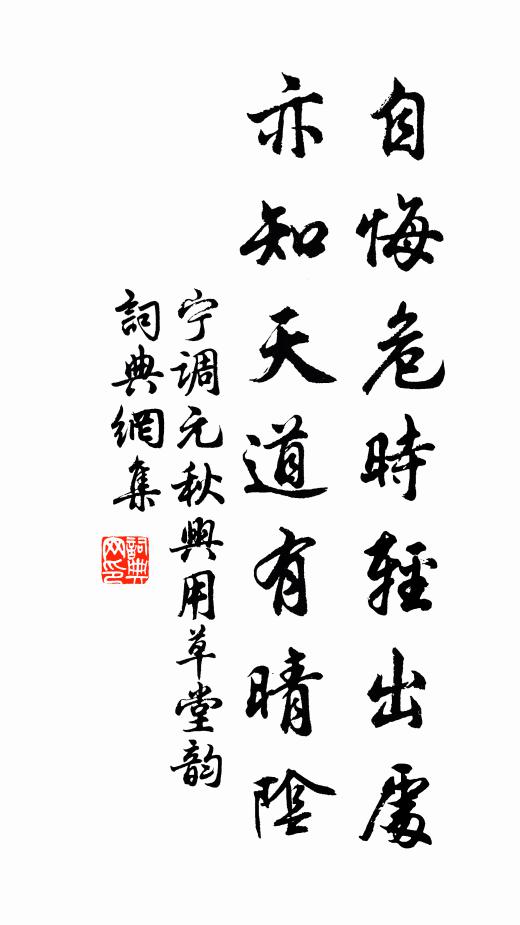 自悔危時輕出處
亦知天道有晴陰
宁调元秋興用草堂韵
詞典網集
詞典网印